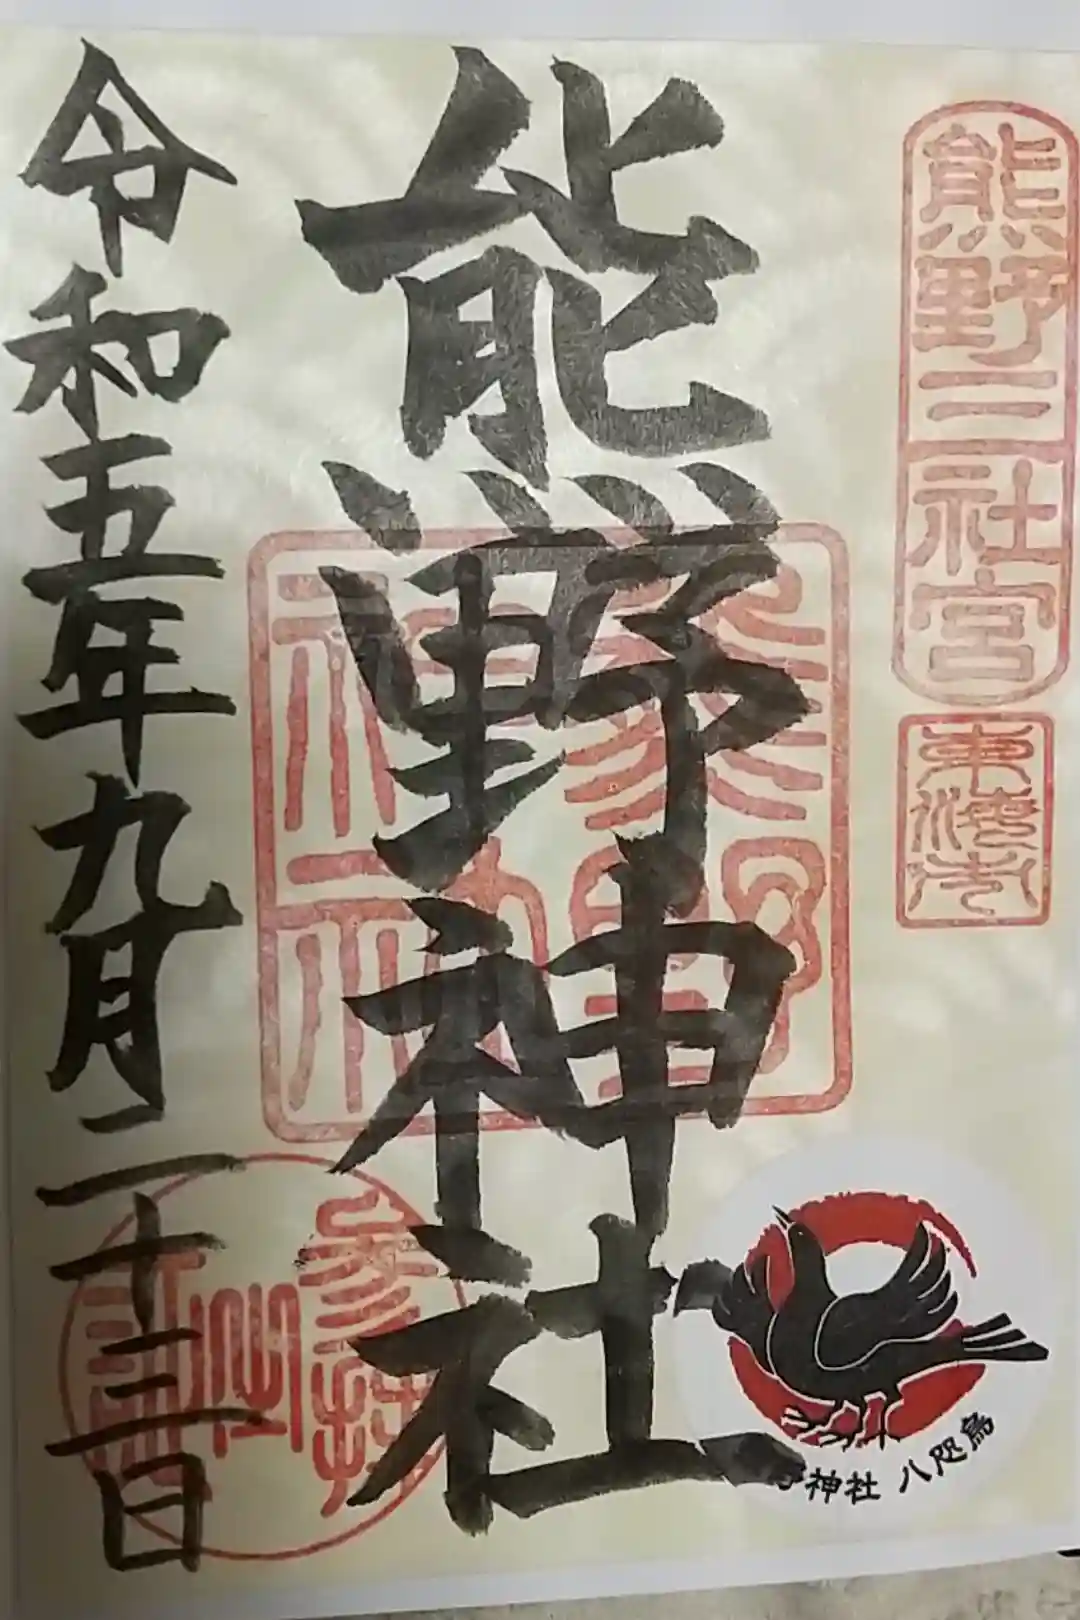 熊野三社宮
東海市
熊野神社
熊野神社
参拝
記念
令和五年九月二十三日
神社 八咫烏